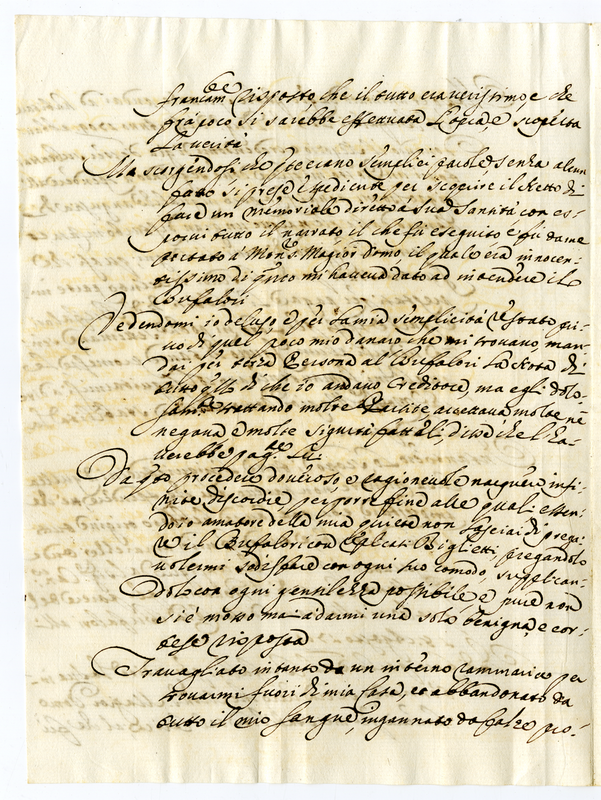 francam.te risposto che il tutto era verissimo, e che
frà poco si sarebbe effettuata l'opera, e scoperta
la verità
Ma scorgendosi che erano semplici parole, senza alcun
fatto si prese espediente per scoprire il retto di
fare un memoriale diretto à Sua Santità con es-
porvi tutto il narrato il che fù eseguito e fù da me
portato a Mons.r Maggior Domo, il quale era innocen-
tissimo di q.nto mi haveva dato ad intendere il
Bufalori
Vedendomi io deluso e per la mia semplicità restato pri-
vo di quel poco mio danaro che mi trovavo, man-
dai per terza Persona al Bufalori la nota di
tutto q.llo di che io andavo Creditore, ma egli dolo-
sam.te trattando molte Partite, accettava molte ne
negava e molte figuri fattali, disse che l'ha-
verebbe pag.te lui
Da q.sto procedere doveroso e ragionevole nacquero infi-
nite discordie per porre fine alle quali essen-
do io amatore della mia quiete non lasciai di prega-
re il Bufalori con replicati Biglietti pregandolo
volermi sodisfare con ogni suo comodo, supplican-
dolo con ogni gentilezza possibile, e pure non
si è mosso mai a darmi una sola benigna, e cor-
tese risposta
Travagliato intanto da un interno rammarico per
trovarmi fuori di mia Casa, et abbandonato da
tutto il mio sangue, ingannato da false pro-